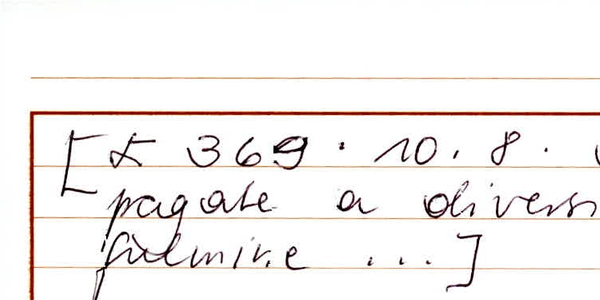 [£ 369 · 10. 8 ·
pagate a diversi
fulmine ...]